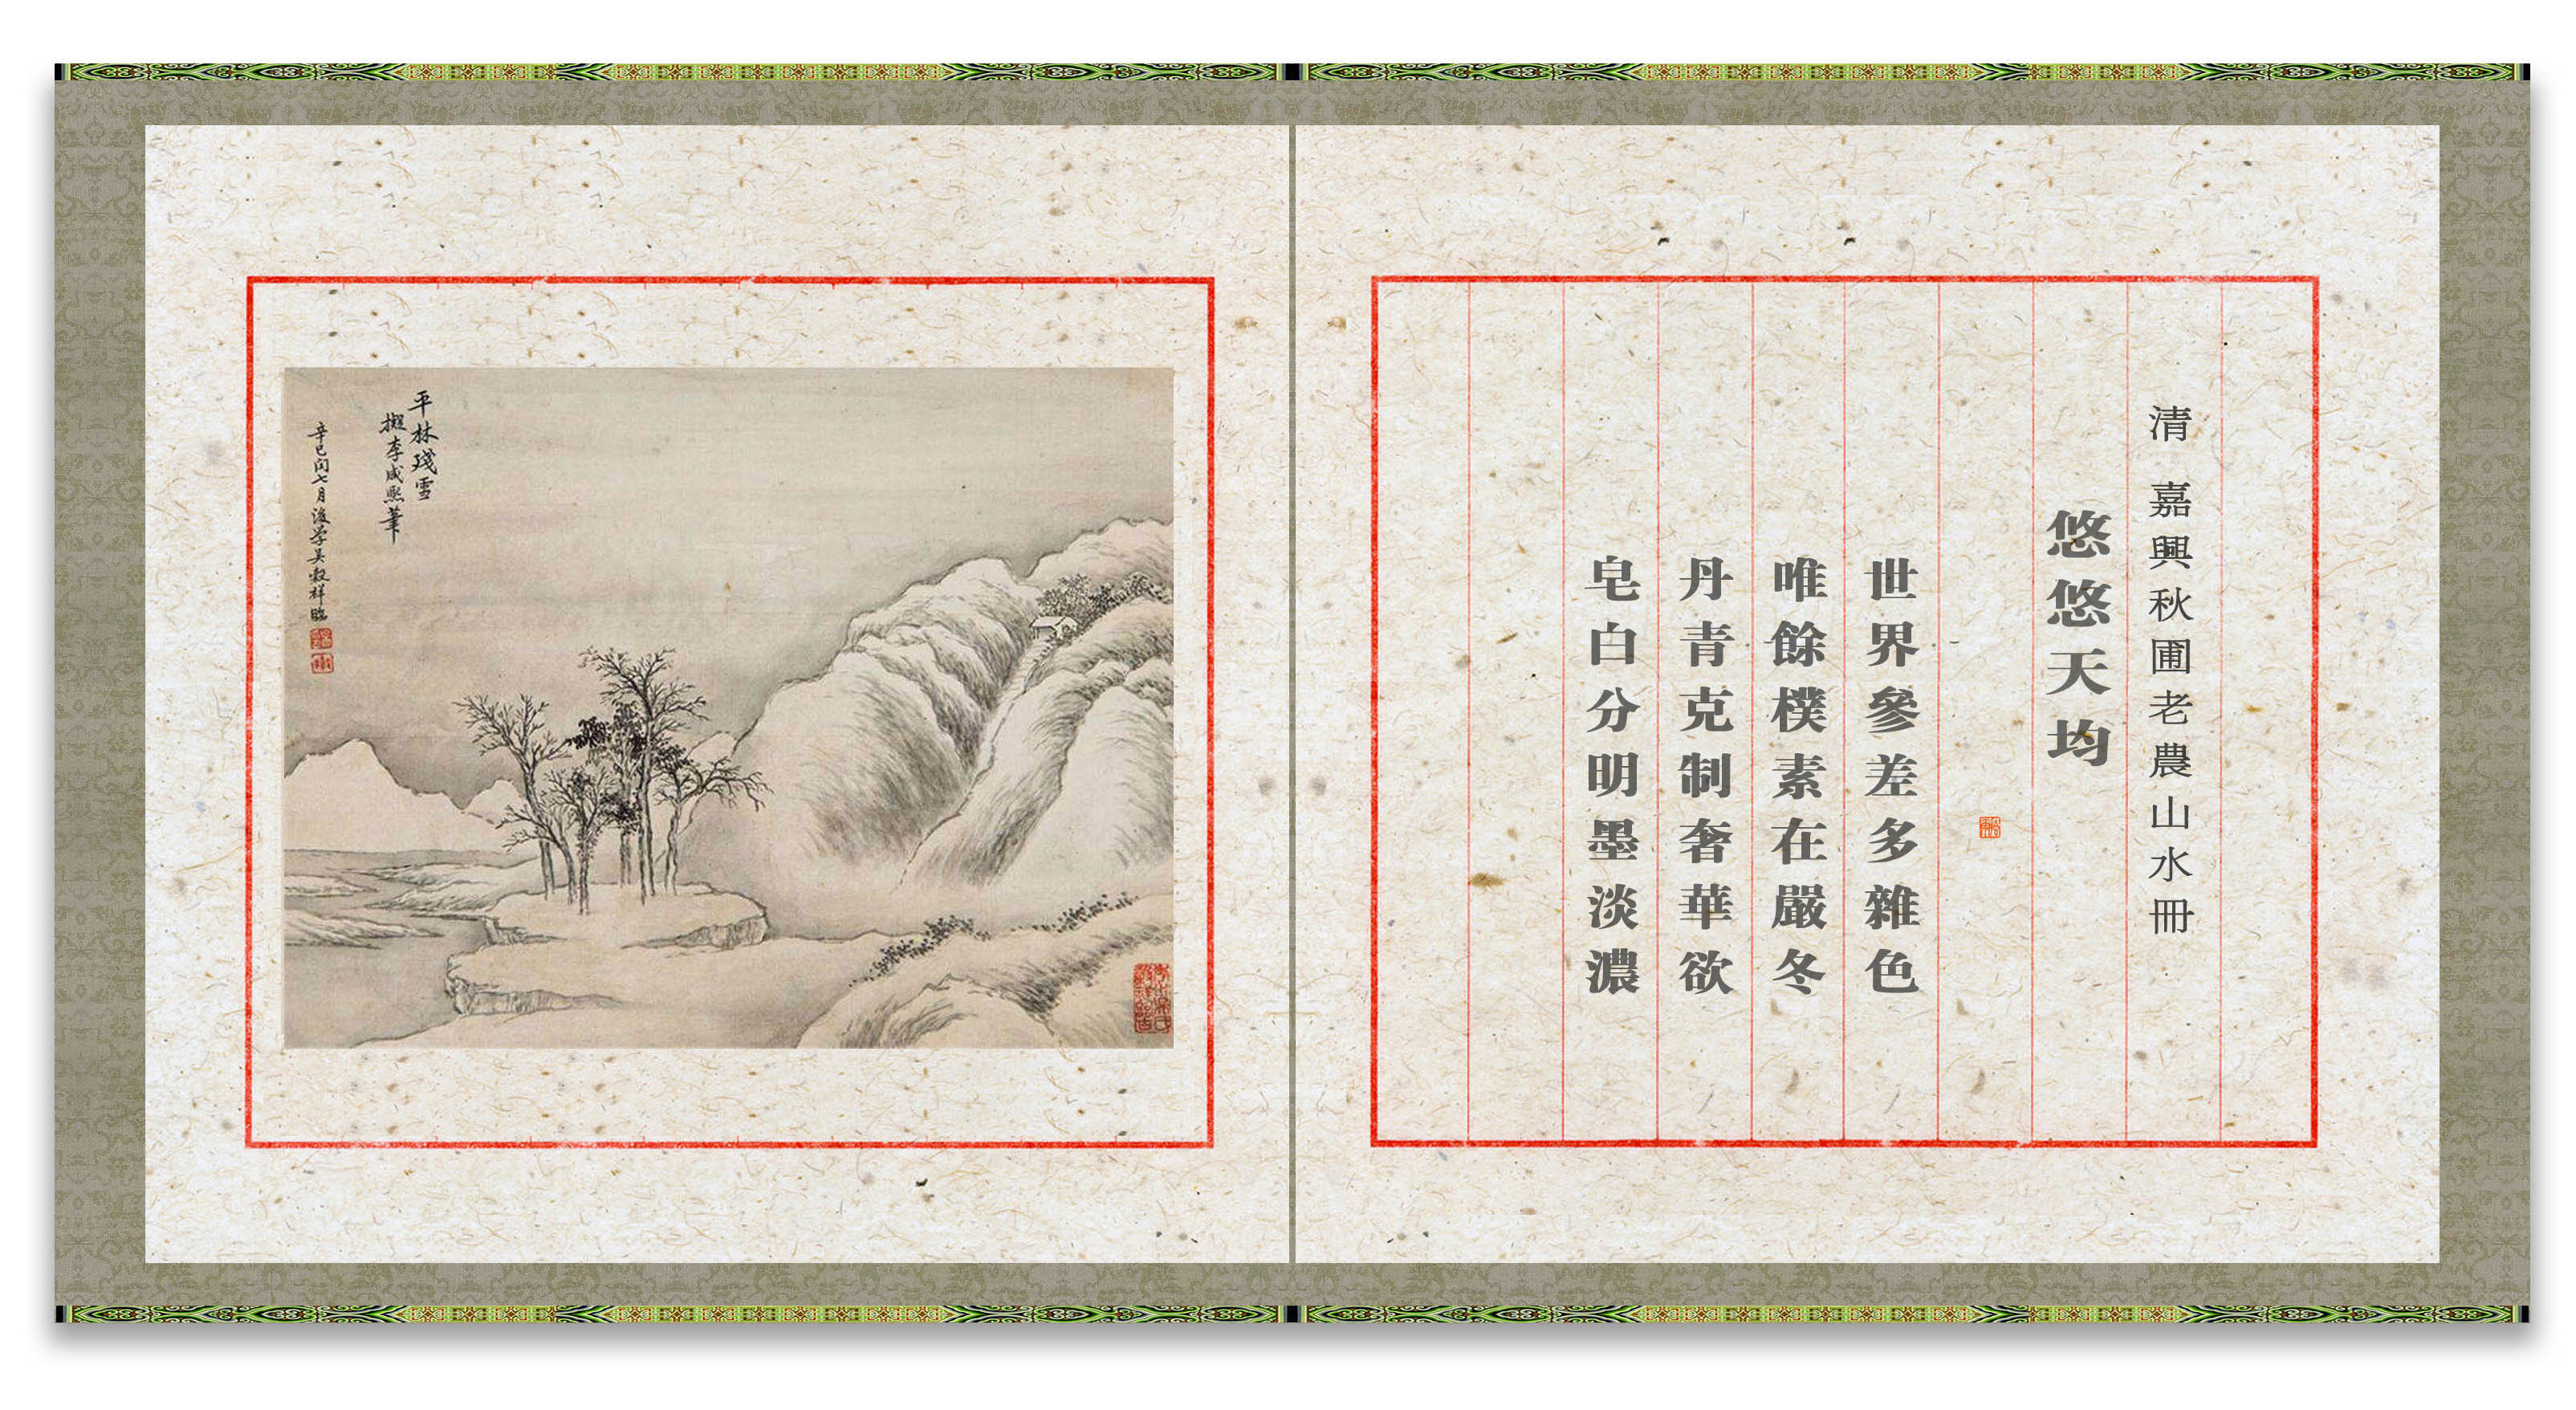 清 嘉興秋圃老農山水冊
悠悠天均
世界參差多雜色
唯餘樸素在嚴冬
丹青克制奢華欲
皂白分明墨淡濃
平林殘雪
擬李咸熙筆
辛巳閏七月後學吳穀祥臨